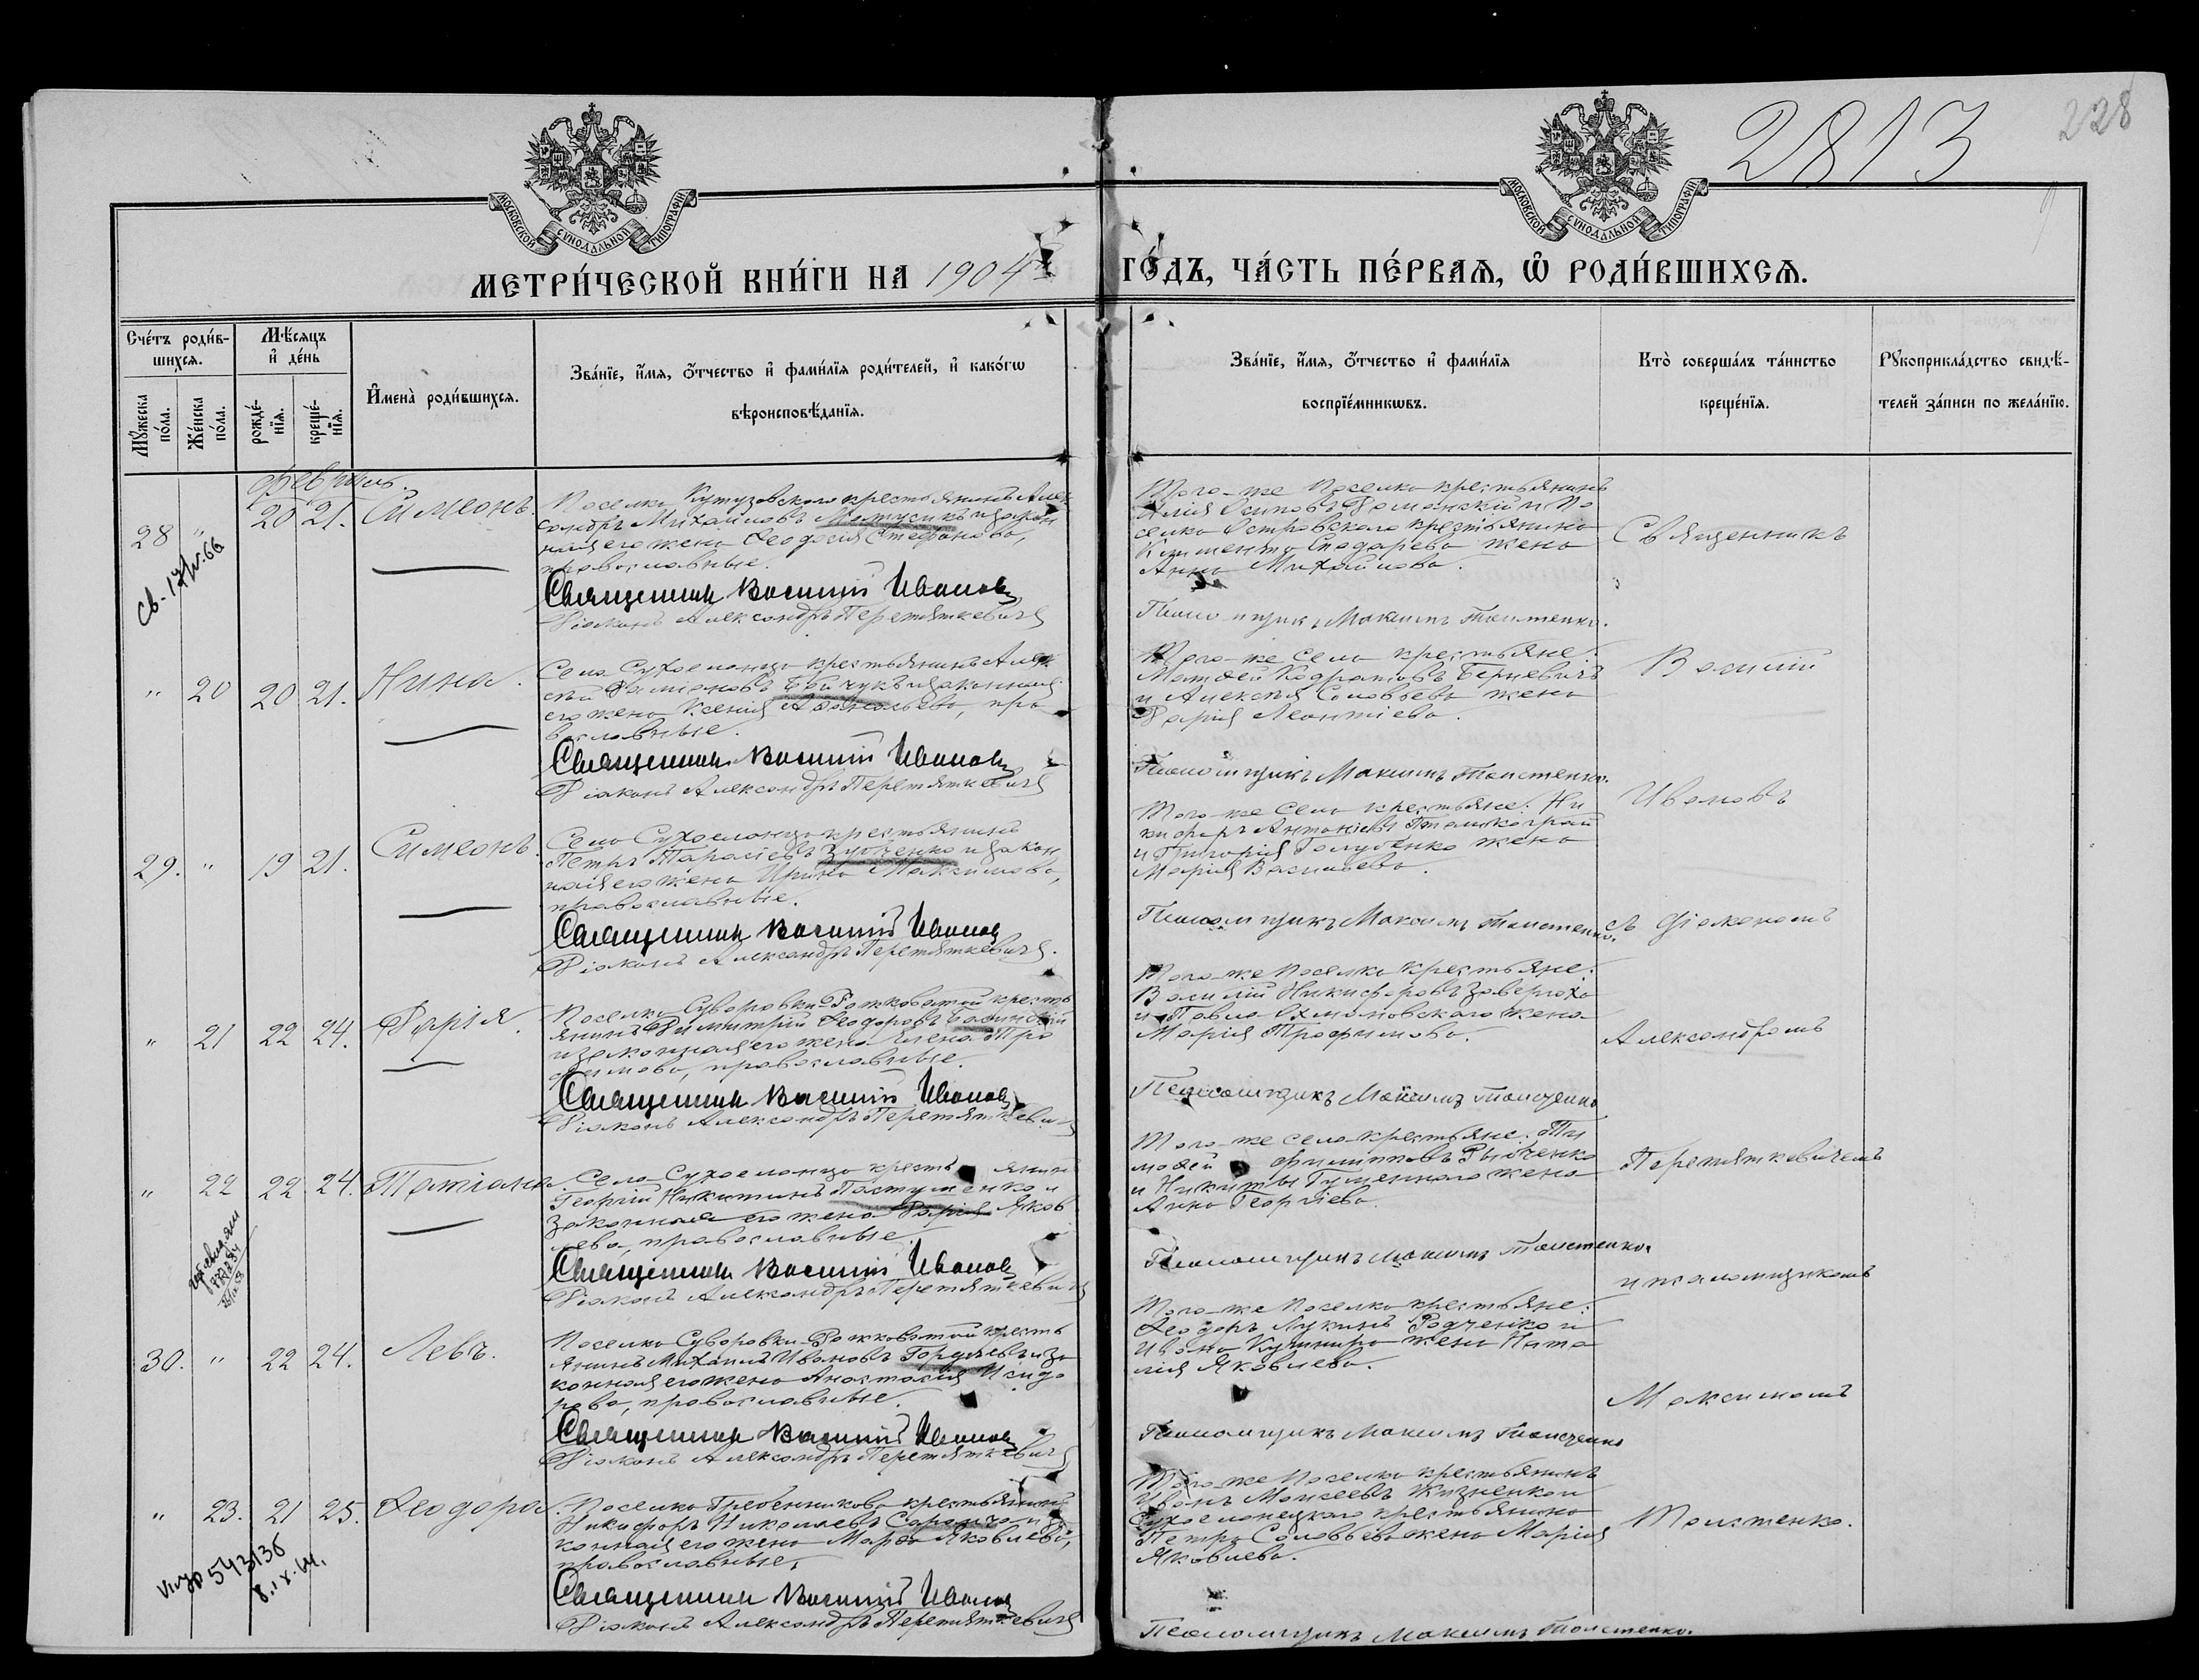 2813
228
МОСКОВСКОЙ СѴНОДАЛЬНОЙ ТИПОГРАФІИ
МОСКОВСКОЙ СѴНОДАЛЬНОЙ ТИПОГРАФІИ
МЕТРИ́ЧЕСКОЙ КНИ́ГИ НА 1904й ГО́ДЪ, ЧА́СТЬ ПЕ́РВАѦ, Ѡ҆ РОДИ́ВШИХСѦ.
Сче́тъ роди́в-
шихсѧ.
Мꙋ́жеска по́ла.
Же́нска по́ла.
Мѣ́сѧцъ и҆ де́нь
рожде́-нїѧ.
креще́-нїѧ.
И҆мена̀ роди́вшихсѧ.
Зва́нїе, и҆́мѧ, ѻ҆́тчество и҆ фами́лїѧ роди́телей, и҆ како́гѡ
вѣроисповѣ́данїѧ.
Зва́нїе, и҆́мѧ, ѻ҆́тчество и҆ фами́лїѧ
воспрїе́мникѡвъ.
Кто̀ соверша́лъ та́инство
креще́нїѧ.
Рꙋкоприкла́дство свидѣ́-
телей за́писи по жела́нїю.
Февраль.
28 " 20 21. Симеонъ.
Поселка Кутузовского крестьянинъ Алек
сандръ Михаиловъ Мотусикъ и закон
ная его жена Ѳеодосія Стефанова,
православные.
Священникъ Василій Ивановъ
Діаконъ Александръ Перетяткевичъ
Того-же поселка крестьянинъ
Осиповъ и По
селка Островского крестьянина
жена
Анна Михайлова.
Псаломщикъ Максимъ Толстенко.
Священникъ
" 20 20 21. Нина.
Села Сухоеланца крестьянинъ Алек
сѣй Симіоновъ Бойчукъ и законная
его жена Ксенія, пра
вославные.
Священникъ Василій Ивановъ
Діаконъ Александръ Перетяткевичъ
Того-же села крестьяне:
Матѳей Кодратовъ Берневичъ
и Алексѣя Соловьева жена
Дарія Леонтіева.
Псаломщикъ Максимъ Толстенко.
Василій
29. " 19 21. Симеонъ.
Села Сухоеланца крестьянинъ
Петръ Тарасіевъ Зубченко и закон
ная его жена Ирина Максимова,
православные.
Священникъ Василій Ивановъ
Діаконъ Александръ Перетяткевичъ.
Того-же села крестьяне: Ни
кифоръ Антоніевъ
и Григорія Голубенко жена
Марія Васильева.
Псаломщикъ Максимъ Толстенко.
Ивановъ
съ діакономъ
" 21 22 24. Дарія.
Поселка Суворовки-Рожковатой кресть
янинъ Димитрій Ѳеодоровъ
и законная его жена Елена Тро
фимова, православные.
Священникъ Василій Ивановъ
Діаконъ Александръ Перетяткевичъ
Того-же поселка крестьяне:
Василій Никифоровъ Заверюха
и Павла жена
Марія Трофимова.
Псаломщикъ Максимъ Толстенко
Александромъ
" 22 22 24. Татіана.
Села Сухоеланца крестьянинъ
Георгій Никитинъ Пастушенко и
законная его жена Дарія Яков
лева, православные
Священникъ Василій Ивановъ
Діаконъ Александръ Перетяткевичъ
Того-же села крестьяне: Ти
моѳей Филипповъ Рыбченко
и Никиты жена
Анна Георгіева.
Псаломщикъ Максимъ Толстенко.
Перетяткевичемъ
и псаломщикомъ
30. " 22 24. Левъ.
Поселка Суворовки-Рожковатой кресть
янинъ Михаилъ Ивановъ Гордѣевъ и за
конная его жена Анастасія Исидо
рова, православные.
Священникъ Василій Ивановъ
Діаконъ Александръ Перетяткевичъ
Того-же поселка крестьяне:
Ѳеодоръ Лукинъ Радченко и
Ивана Кушнира жена Ната
лія Яковлева.
Псаломщикъ Максимъ Толстенко
Максимомъ
" 23. 21 25. Ѳеодора.
Поселка Гребенникова крестьянинъ
Никифоръ Николаевъ и за
конная его жена Марѳа Яковлева,
православные.
Священникъ Василій Ивановъ
Діаконъ Александръ Перетяткевичъ
Того-же поселка крестьянинъ
Иванъ Моисеевъ Жизненко и
Сухоеланецкаго крестьянина
Петра Соловьева жена Марія
Яковлева.
Псаломщикъ Максимъ Толстенко.
Толстенко.
543136